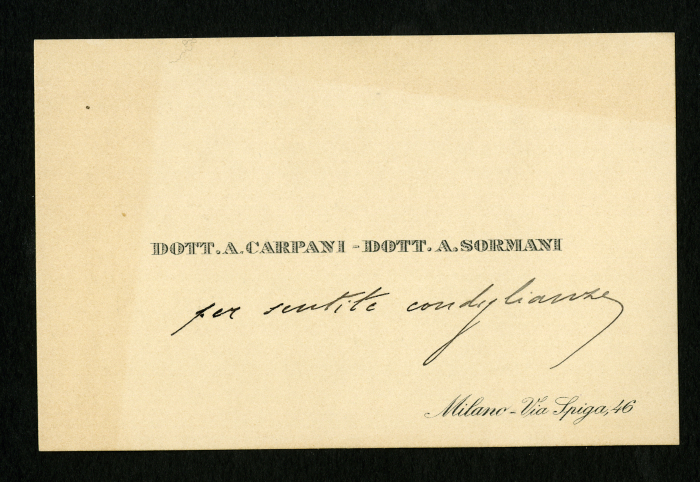 DOTT. A. CARPANI - DOTT. A. SORMANI
per sentite condoglianze
Milano - Via Spiga, 46